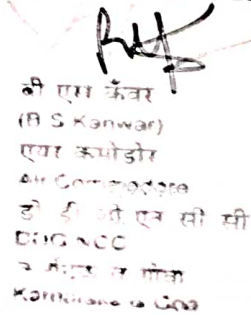 बी एस कँवर
(B S Kanwar)
एयर कमोडोर
Air Commodore
डी डी जी एन सी सी
DDG NCC
कर्नाटक व गोवा
Karnataka & Goa